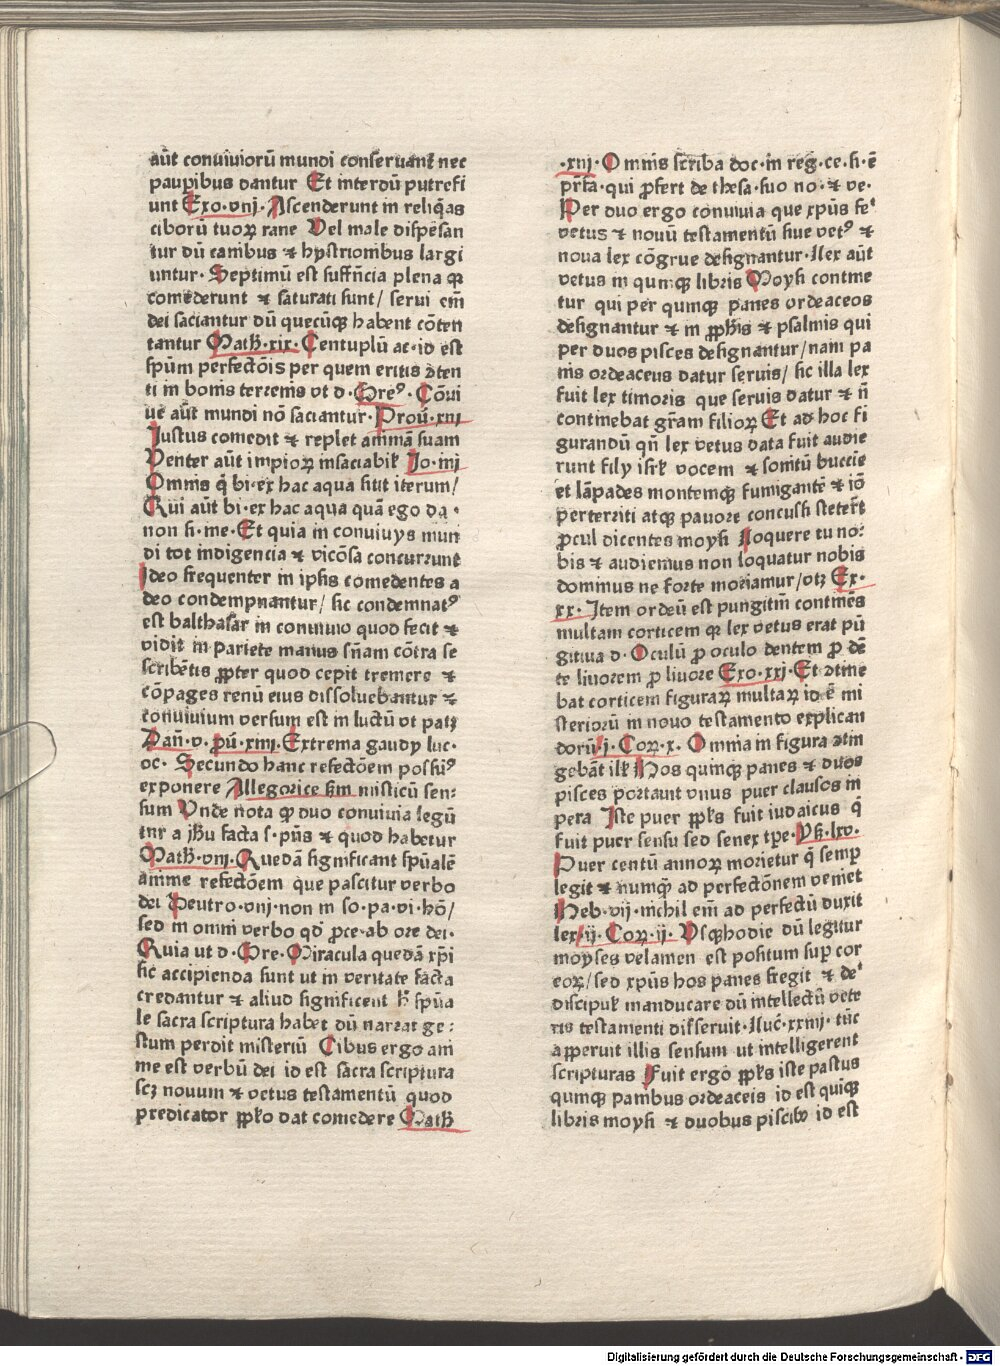 aūt conuiuiorū mundi conseruant nec
pauꝑibus dantur Et interdū putrefi
unt Exo·vnj· Ascenderunt in reliq̄as
ciborū tuoꝝ rane Vel male dispēsan
tur dū canibus ⁊ hystrionibus largi
untur· Septimū est suffn̄cia plena qꝛ
comederunt ⁊ saturati sunt/ serui em̄
dei saciantur dū quecūqꝫ habent cōten
tantur Math·xix· Centuplū ac·id est
sp̄um perfectōis per quem eritis ↄten
ti in bonis terrenis vt d·Greꝰ· Cōui
ue aūt mundi nō saciantur·Prou·xiij
Justus comedit ⁊ replet animā suam
Venter aūt impioꝝ insaciabil Jo·iiij
Omnis q̄ bi·ex hac aqua sitit iterum/
Qui aūt bi·ex hac aqua quā ego da·
non si·me·Et quia in conuiuijs mun
di tot indigencia ⁊ vicōsa concurrunt
Ideo frequenter in ipsis comedentes a
deo condempnantur/ sic condemnatꝰ
est balthasar in conuiuio quod fecit ⁊
vidit in pariete manus sn̄am cōtra se
scribētis ꝓpter quod cepit tremere ⁊
cōpages renū eius dissoluebantur ⁊
conuiuium versum est in luctū vt patꝫ
Dan̄·v· pū·xiiij·Extrema gaudij luc·
oc· Secundo hanc refectōem possūꝰ
exponere Allegorice sm̄ misticū sen:
sum Vnde nota ꝙ duo conuiuia legū
tur a jhū facta s·pn̄s ⁊ quod habetur
Math·vnj·Quedā significant sp̄ualē
anime refectōem que pascitur verbo
dei Deutro·vnj·non in so·pa·vi·hō/
sed in omni verbo qd̄ ꝓce·ab ore dei·
Quia ut d·Gre·Miracula quedā xp̄i
sic accipienda sunt ut in veritate facta
credantur ⁊ aliud significent h̄ sp̄ua
le sacra scriptura habet dū narrat ge:
stum perdit misteriū Cibus ergo ani
me est verbū dei id est sacra scriptura
scꝫ nouum ⁊ vetus testamentū quod
predicator ꝓplo dat comedere Math
·xiij·Omnis scriba doc·in reg·ce·si·ē
pr̄fa·qui ꝓfert de thesa·suo no·⁊ ve·
Per duo ergo conuiuia que xpūs feꝰ
vetus ⁊ nouū testamentū siue vetꝰ ⁊
noua lex cōgrue designantur·Lex aūt
vetus in quinqꝫ libris Moysi contine
tur qui per quinqꝫ panes ordeaceos
designantur ⁊ in ꝓphis ⁊ psalmis qui
per duos pisces designantur/nam pa
nis ordeaceus datur seruis/ sic illa lex
fuit lex timoris que seruis datur ⁊ n̄
continebat grām filioꝝ Et ad hoc fi
gurandū qn̄ lex vetus data fuit audie
runt filij isrl vocem ⁊ sonitū buccine
et lāpades montemqꝫ fumigantē ⁊ iō
perterriti atqꝫ pauore concussi steterūt
ꝓcul dicentes moysi Loquere tu no:
bis ⁊ audiemus non loquatur nobis
dominus ne forte moriamur/vtꝫ Ex·
xx· Item ordeū est pungitiū continēs
multam corticem qꝛ lex vetus erat pū
gitiua d· Oculū ꝓ oculo dentem ꝓ dē
te liuorem ꝓ liuore Exo·xxj·Et ↄtine
bat corticem figuraꝝ multaꝝ id ē mi
steriorū in nouo testamento explican
dorū·j·Corꝝ·x· Omnia in figura ↄtin
gebāt ill Hos quinqꝫ panes ⁊ duos
pisces portauit vnus puer clausos in
pera Iste puer ꝓpls fuit iudaicus q̄
fuit puer sensu sed senex tꝑe·Ys·lxv·
Puer centū annoꝝ morietur q̄ semꝑ
legit ⁊ nunqꝫ ad perfectōnem veniet
Heb·vij·nichil em̄ ad perfectū duxit
lex·ij·Corꝝ·ij· Vsqꝫhodie dū legitur
moyses velamen est positum suꝑ cor
eoꝝ/sed xpūs hos panes fregit ⁊ deᵗ
discipul manducare dū intellectū vete
ris testamenti disseruit·Luc·xxiiij·tūc
aꝑperuit illis sensum ut intelligerent
scripturas Fuit ergo ꝓpls iste pastus
quinqꝫ panibus ordeaceis id est quiqꝫ
libris moysi ⁊ duobus piscibꝰ id est
Digitalisierung gefördert durch die Deutsche Forschungsgemeinschaft - DFG